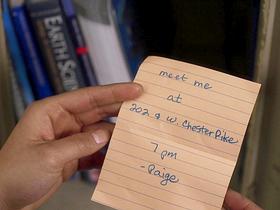 EARTH SCIEN
meet me
at
202 & W. Chester Pike
7 pm
-Paige